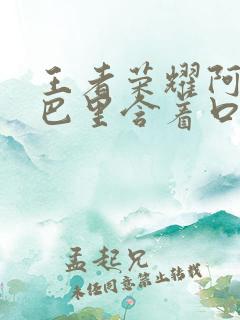 王者荣耀阿
巴里含着口
孟起兄
未经同意禁止转载